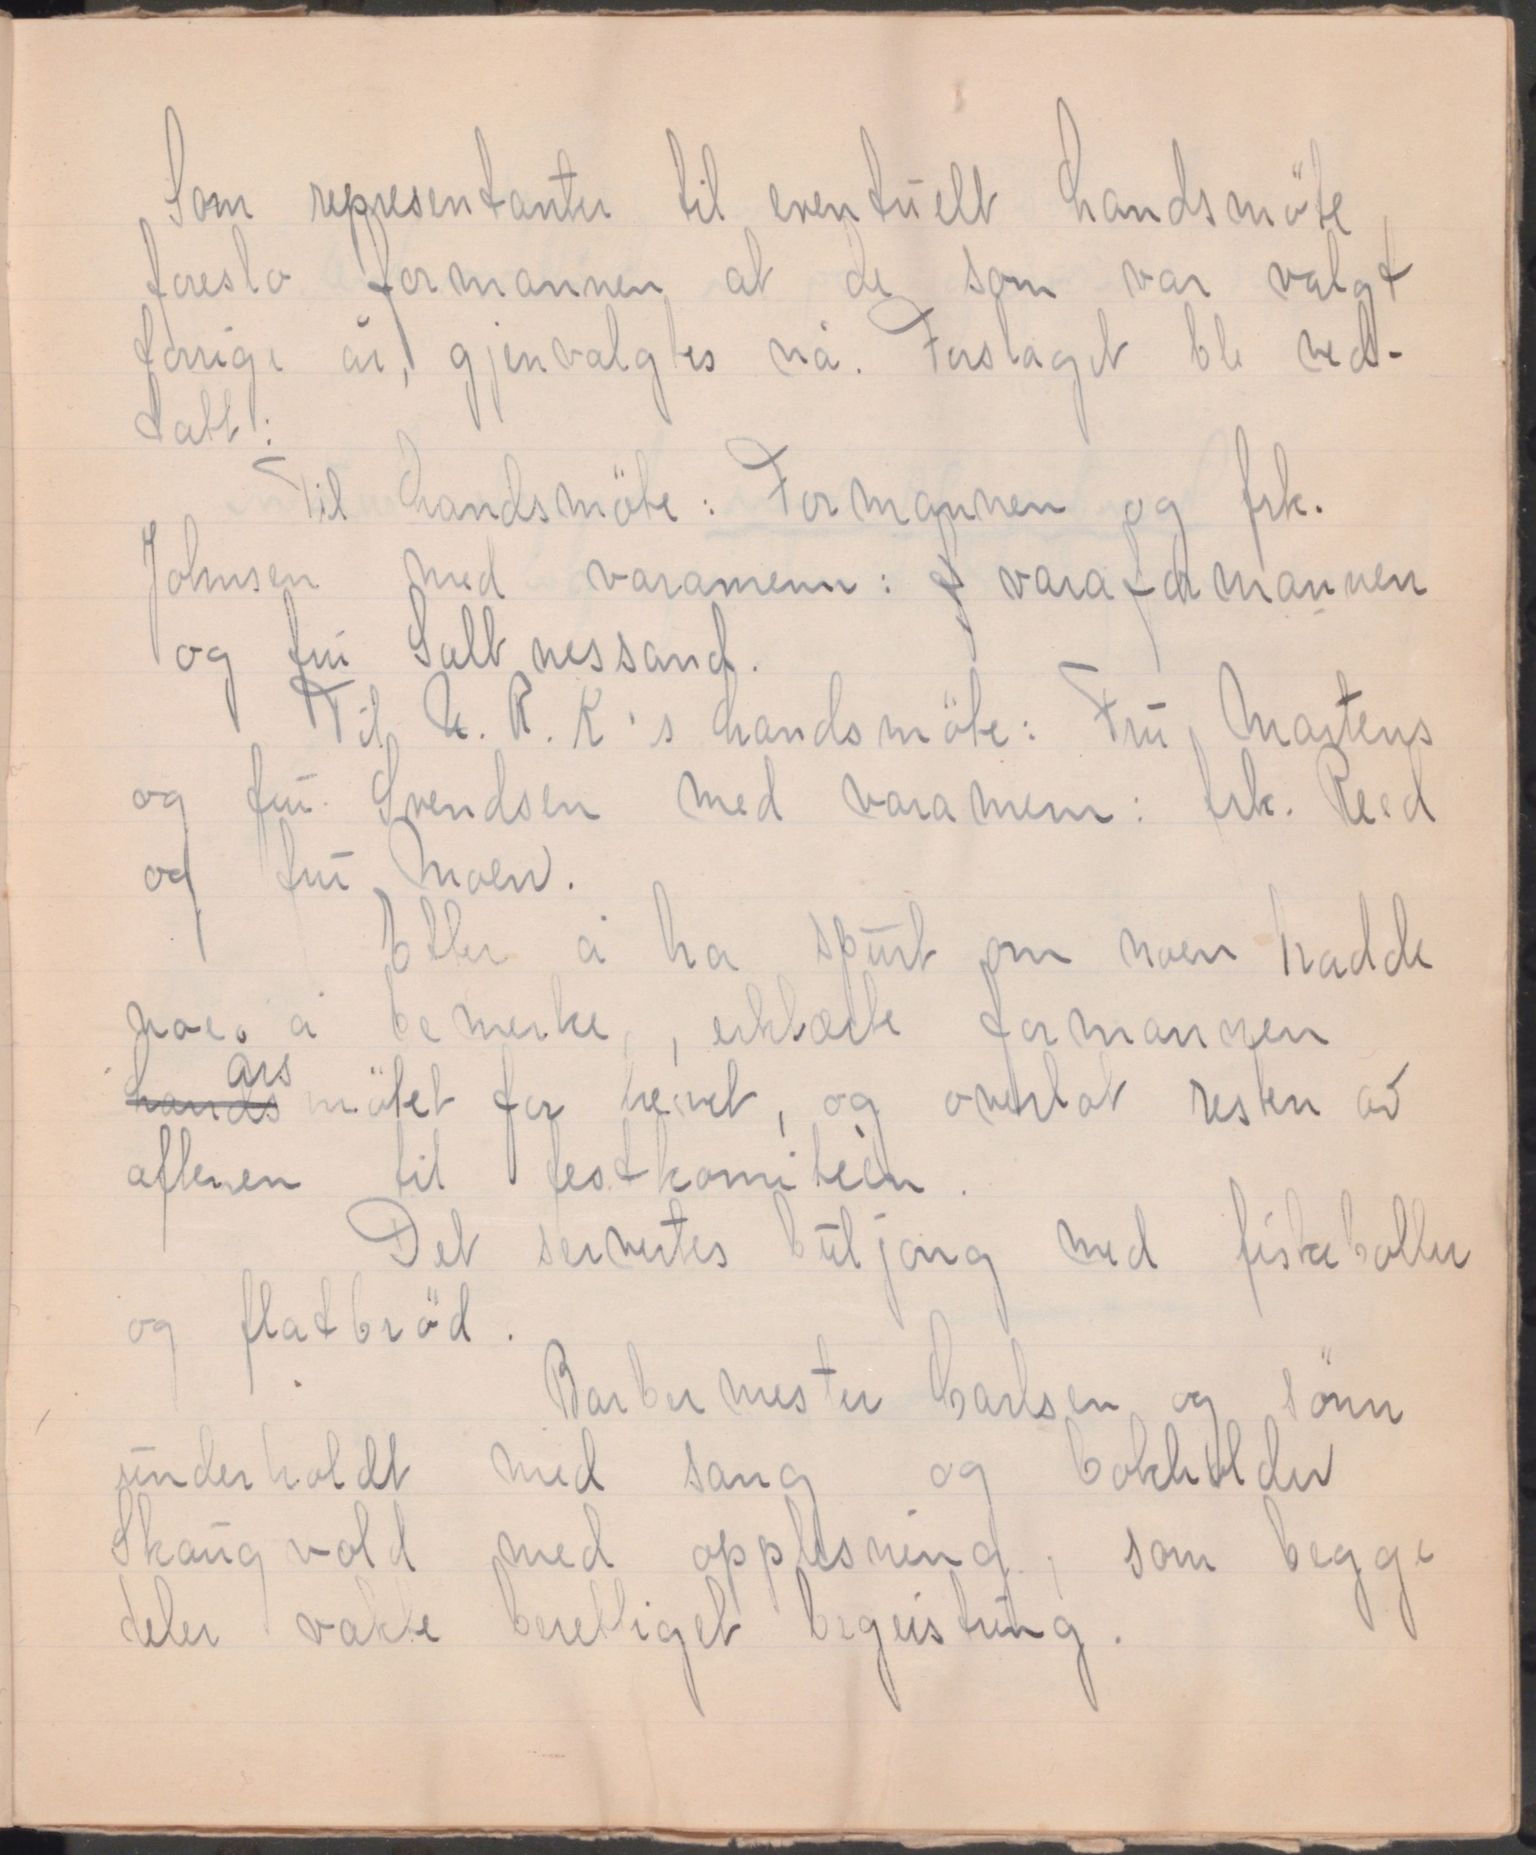 Som representanter til eventuelt landsmöte
foreslo formannen at de som var valgt
forrige år, gjenvalgtes nå. Forslaget ble ved-
tatt:
Til landsmöte: Formannen og frk.
Johnsen med varamenn: varaformannen
og fru Saltnessand.
Til U.R.K's landsmöte: Fru Martens
og fru Svendsen med varamenn: frk. Reed
og fru Moen.
Etter å ha spurt om noen hadde
noe å bemerke, erklærte formannen
lands års
mötet for hevet, og overlot resten av
aftenen til festkomiteèn.
Det servertes buljong med fiskeboller
og flatbröd.
Barbermester Carlsen og sönn
underholdt med sang og bokholder
Skaugvold med opplesning, som begge
deler vakte berettiget begeistring.